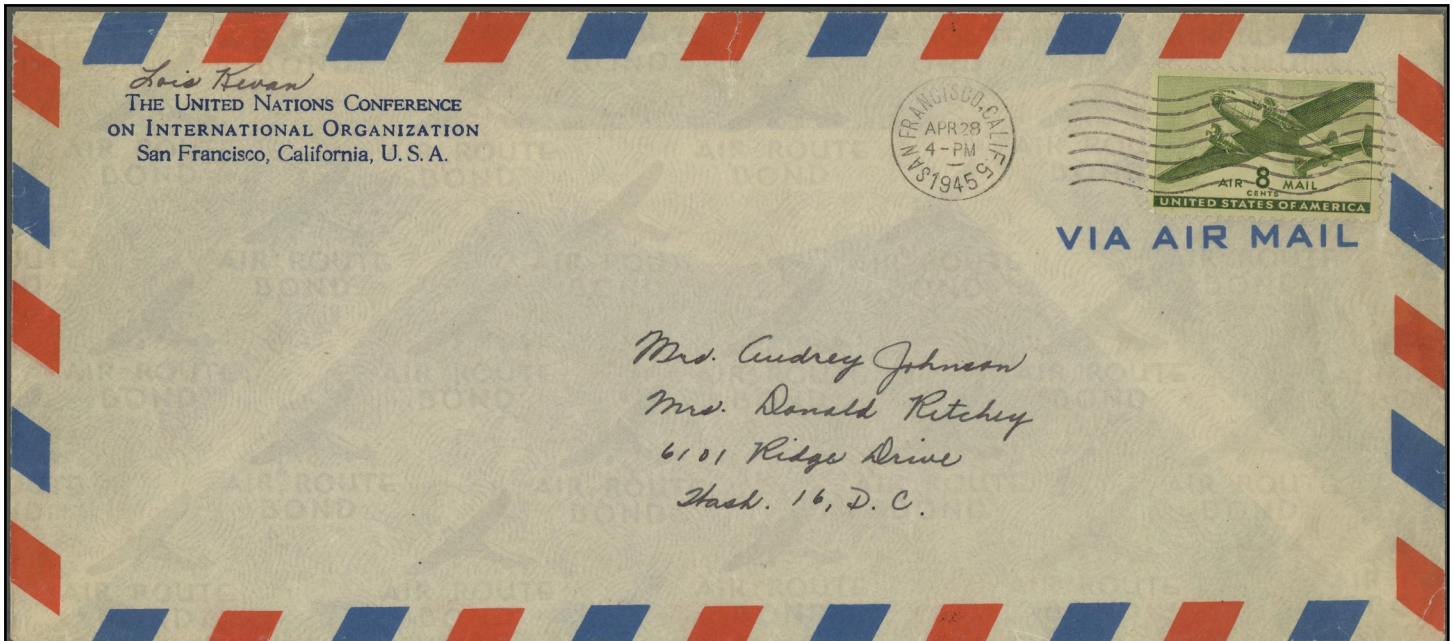 Lois Kevan
THE UNITED NATIONS CONFERENCE
ON INTERNATIONAL ORGANIZATION
San Francisco, California, U. S. A.
SAN FRANCISCO, CALIF. 5
APR 28
4-PM
1945
AIR 8 MAIL
CENTS
UNITED STATES OF AMERICA
VIA AIR MAIL
Mrs. Audrey Johnson
Mrs. Donald Ritchey
6101 Ridge Drive
Wash. 16, D. C.
AIR ROUTE
BOND